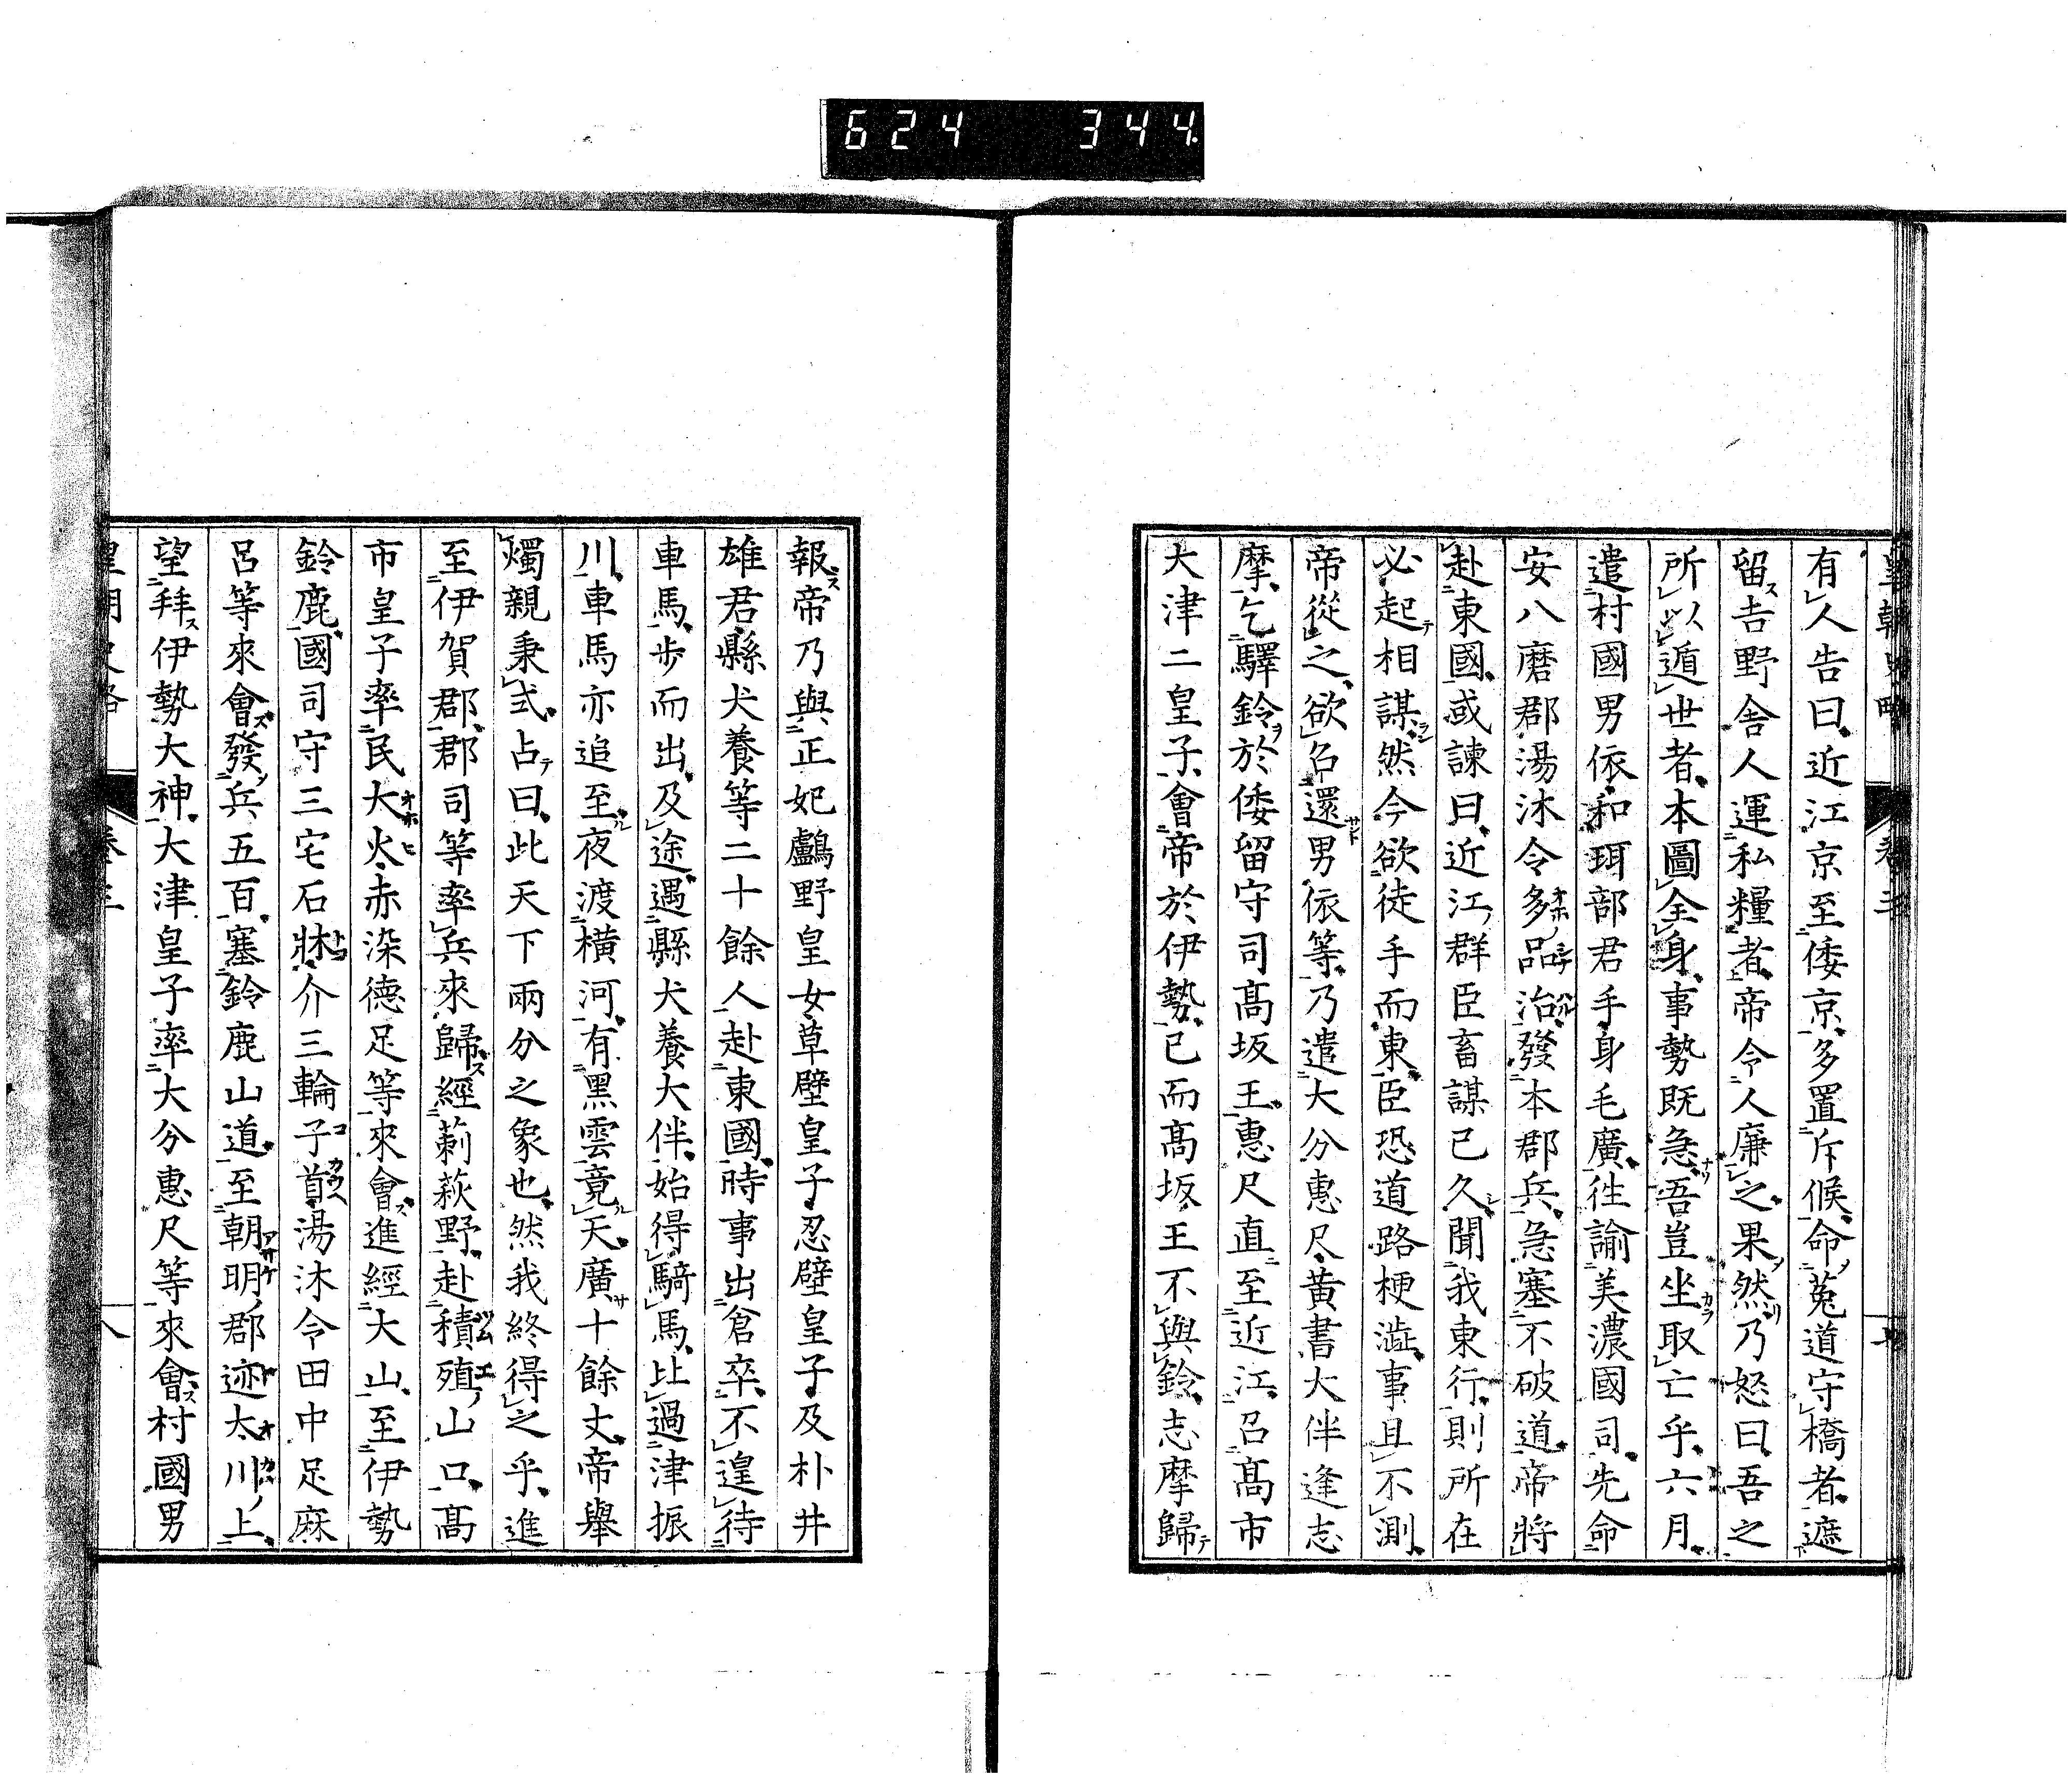 624 344
皇朝史略 卷三 七
有人告曰近江京至倭京多置斥候命菟道守橋者遮
留吉野舍人運私糧者帝令人廉之果然乃怒曰吾之
所以遁世者本圖全身事勢既急吾豈坐取亡乎六月
遣村國男依和珥部君手身毛廣徃諭美濃國司先命
安八磨郡湯沐令多品治發本郡兵急塞不破道帝將
赴東國或諫曰近江群臣畜謀已久聞我東行則所在
必起相謀然今欲徒手而東臣恐道路梗澁事且不測
帝從之欲召還男依等乃遣大分惠尺黃書大伴逢志
摩乞驛鈴於倭留守司髙坂王惠尺直至近江召髙市
大津二皇子會帝於伊勢已而髙坂王不與鈴志摩歸
報帝乃與正妃鸕野皇女草壁皇子忍壁皇子及朴井
雄君縣犬養等二十餘人赴東國時事出倉卒不遑待
車馬步而出及途遇縣犬養大伴始得騎馬比過津振
川車馬亦追至夜渡橫河有黑雲竟天廣十餘丈帝舉
燭親秉式占曰此天下兩分之象也然我終得之乎進
至伊賀郡郡司等率兵來歸經莿萩野赴積殖山口髙
市皇子率民大火赤染德足等來會進經大山至伊勢
鈴鹿國司守三宅石牀介三輪子首湯沐令田中足麻
呂等來會發兵五百塞鈴鹿山道至朝明郡迹太川上
望拜伊勢大神大津皇子率大分惠尺等來會村國男
皇朝史略 卷三 八